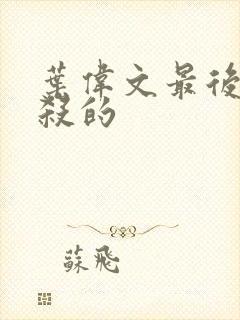 葉偉文最後
殺的
蘇飛